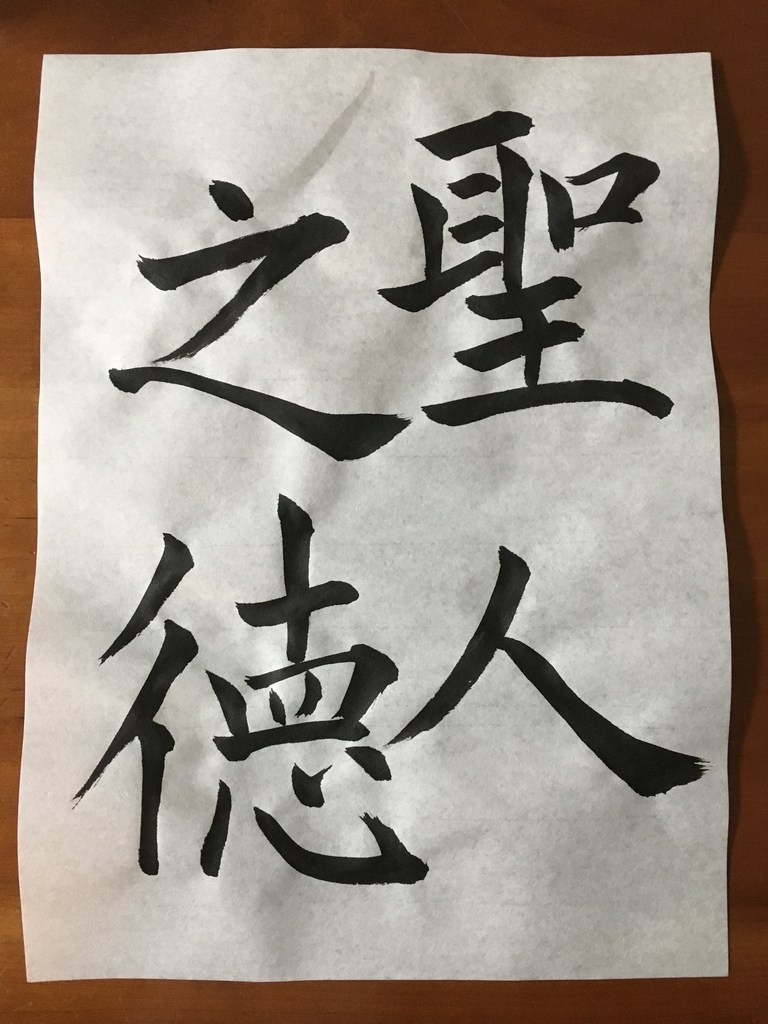 聖人
之徳